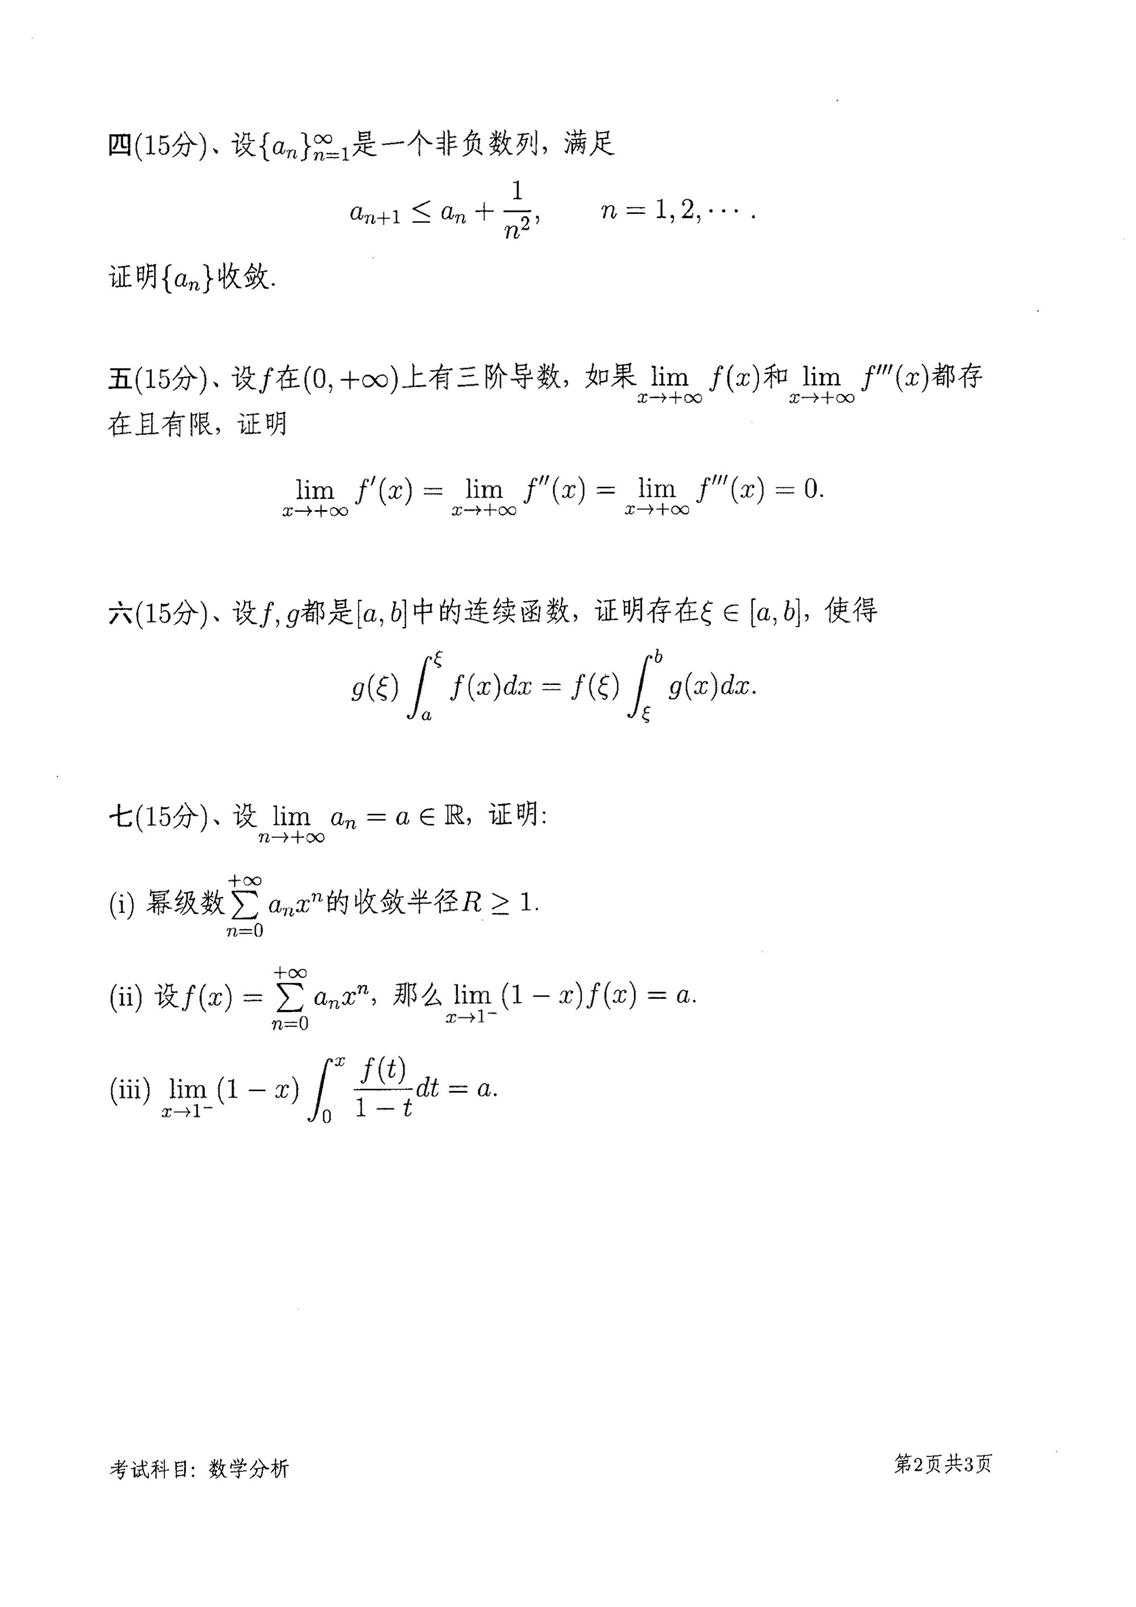 四(15分)、设{aₙ}ₙ₌₁^∞是一个非负数列，满足
aₙ₊₁ ≤ aₙ + 1/n², n = 1, 2, ⋯ .
证明{aₙ}收敛.
五(15分)、设f在(0, +∞)上有三阶导数，如果 lim_{x→+∞} f(x)和 lim_{x→+∞} f′′′(x)都存
在且有限，证明
lim_{x→+∞} f′(x) = lim_{x→+∞} f′′(x) = lim_{x→+∞} f′′′(x) = 0.
六(15分)、设f, g都是[a, b]中的连续函数，证明存在ξ ∈ [a, b]，使得
g(ξ) ∫_a^ξ f(x)dx = f(ξ) ∫_ξ^b g(x)dx.
七(15分)、设 lim_{n→+∞} aₙ = a ∈ ℝ，证明:
(i) 幂级数 ∑_{n=0}^{+∞} aₙxⁿ的收敛半径R ≥ 1.
(ii) 设f(x) = ∑_{n=0}^{+∞} aₙxⁿ，那么 lim_{x→1⁻} (1 − x)f(x) = a.
(iii) lim_{x→1⁻} (1 − x) ∫_0^x f(t)/(1 − t) dt = a.
考试科目: 数学分析
第2页共3页